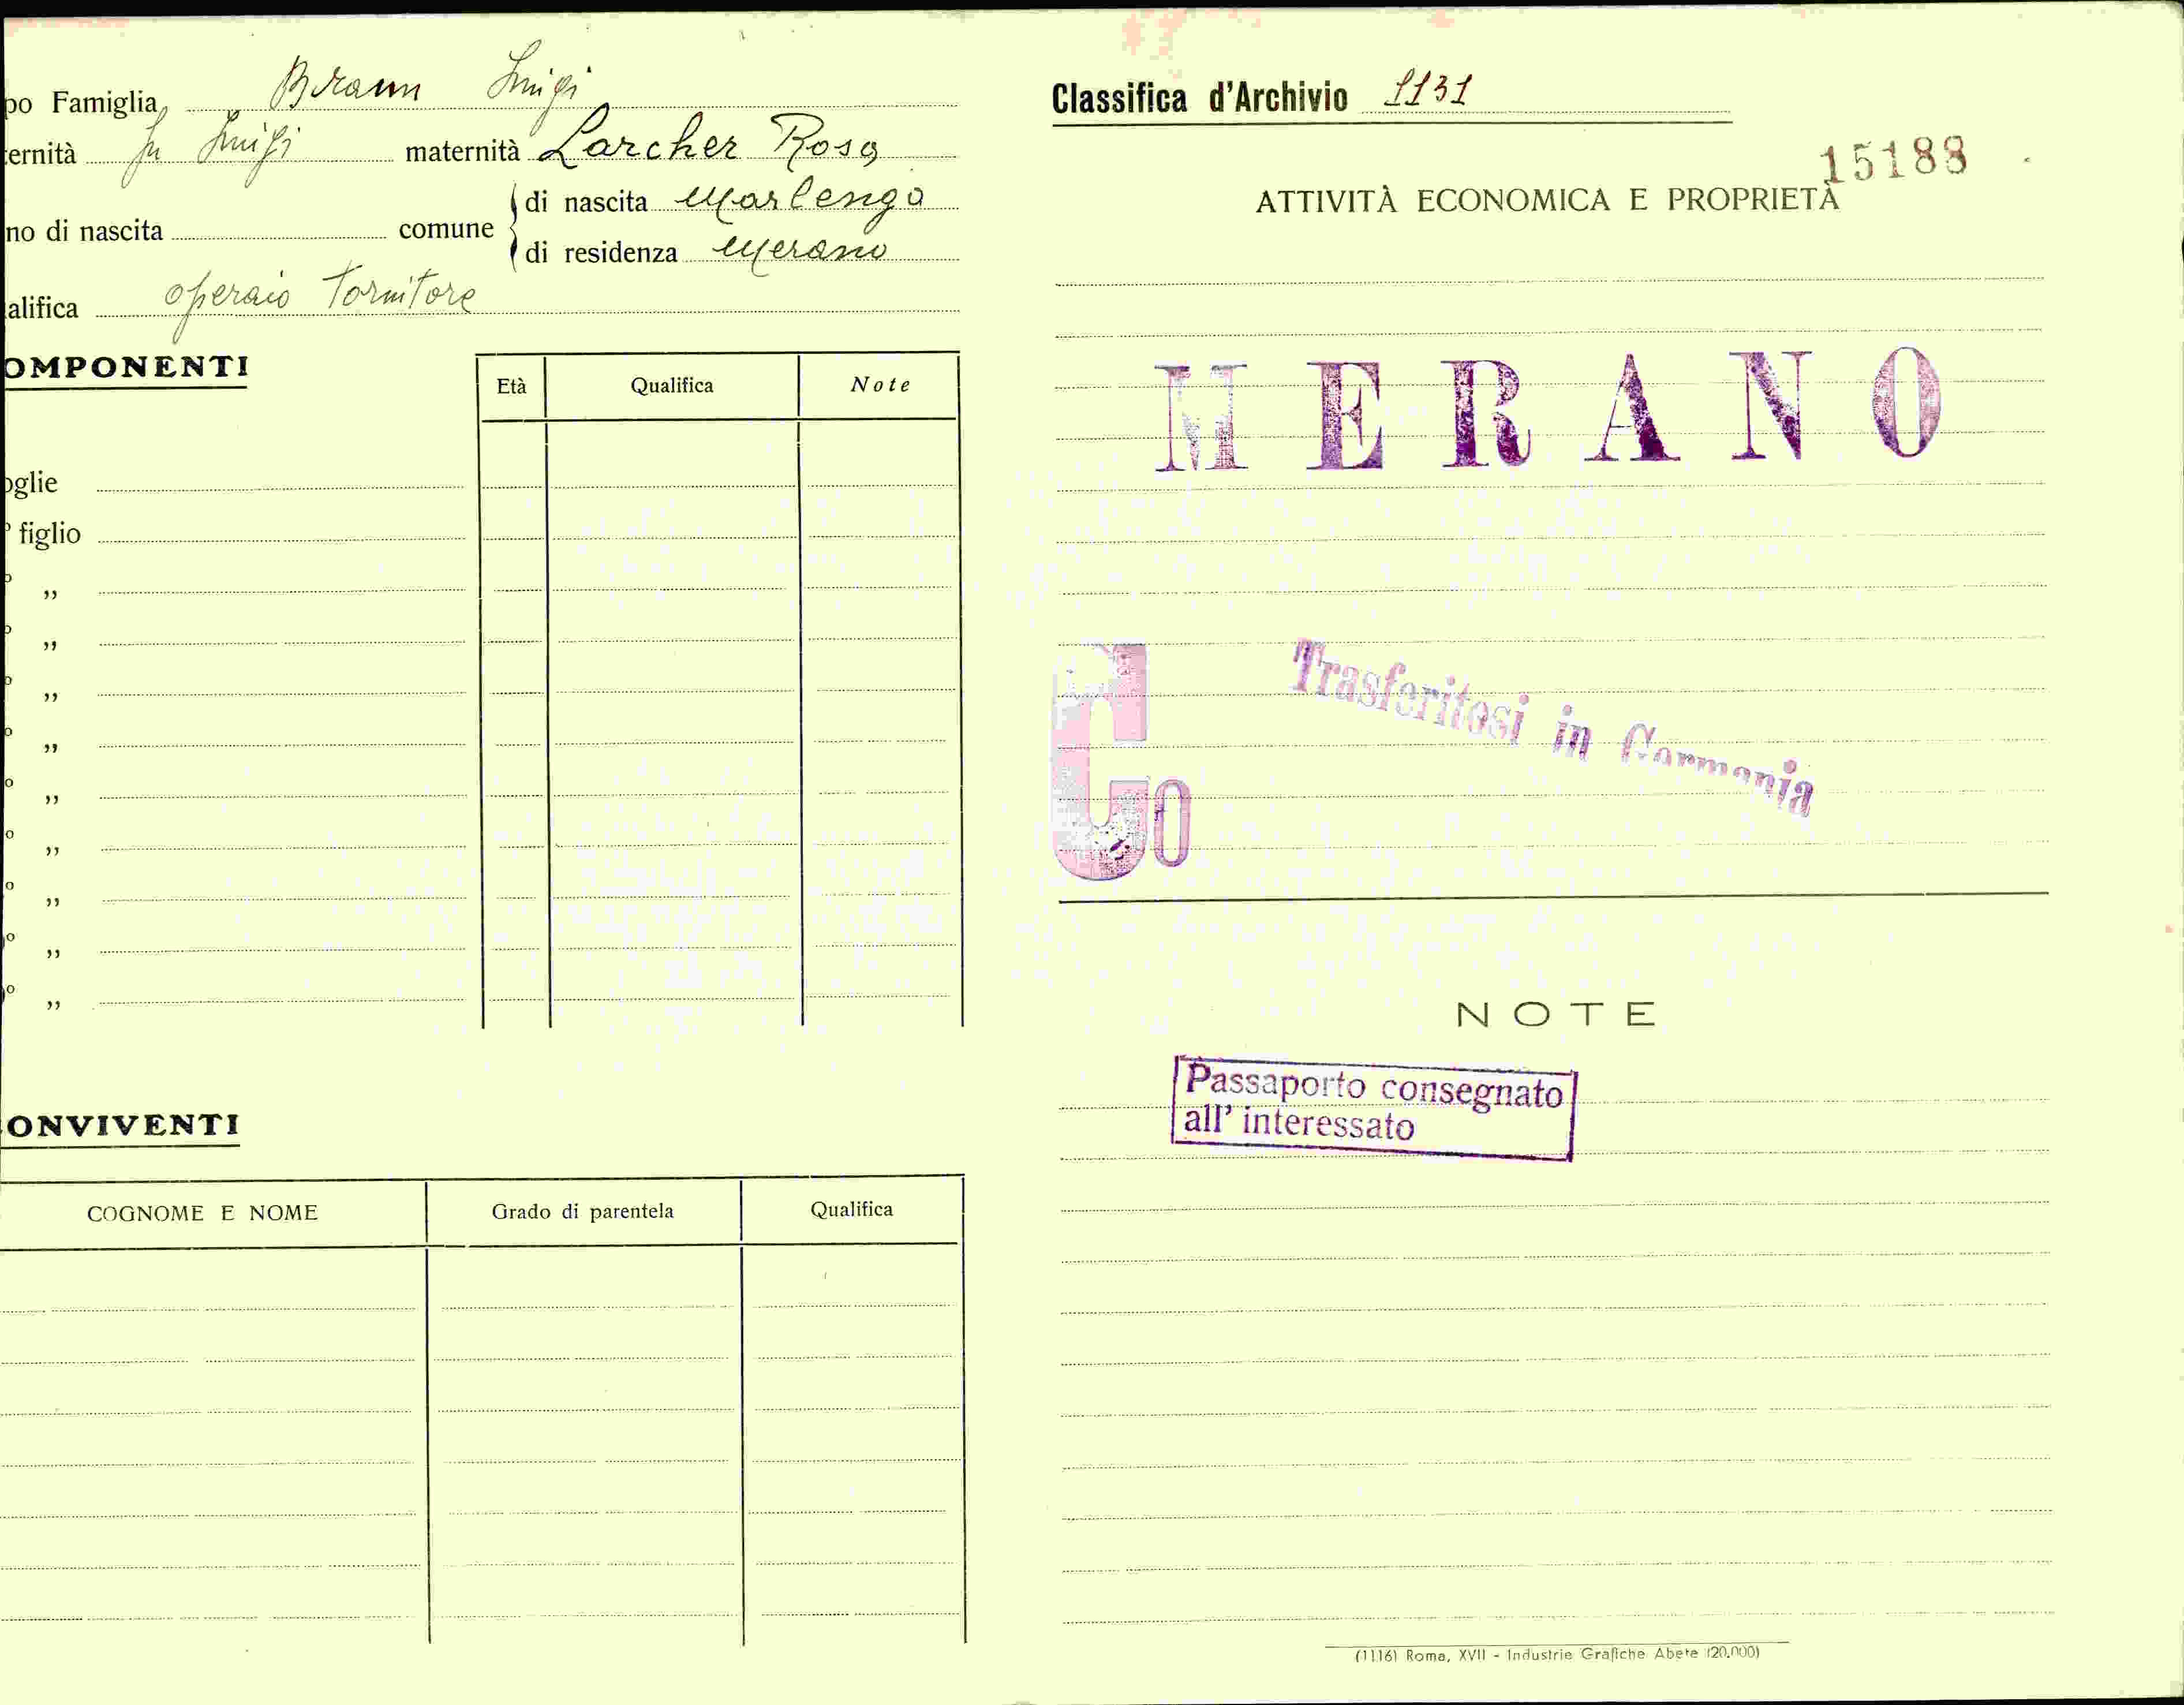 po Famiglia Braun Luigi
ernità fu Luigi maternità Larcher Rosa
no di nascita comune di nascita Marlengo
di residenza Merano
alifica operaio tornitore
OMPONENTI
Età Qualifica Note
oglie
° figlio
° „
° „
° „
° „
° „
° „
° „
° „
° „
ONVIVENTI
COGNOME E NOME Grado di parentela Qualifica
Classifica d'Archivio 1131
15188
ATTIVITÀ ECONOMICA E PROPRIETÀ
MERANO
Trasferitosi in Germania
Co
NOTE
Passaporto consegnato
all' interessato
(1116) Roma, XVII - Industrie Grafiche Abete (20.000)